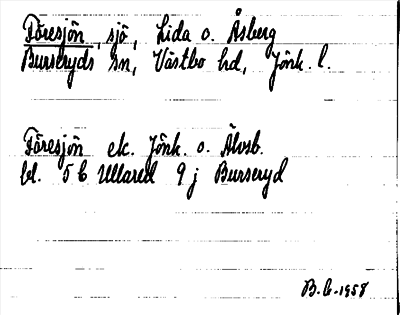 Töresjön, sjö, Lida o. Åsberg
Burseryds sn, Västbo hd, Jönk. l.
Töresjön ek. Jönk. o. Älvsb.
bl. 5 6 Ullared 9 j Burseryd
B.G. 1958